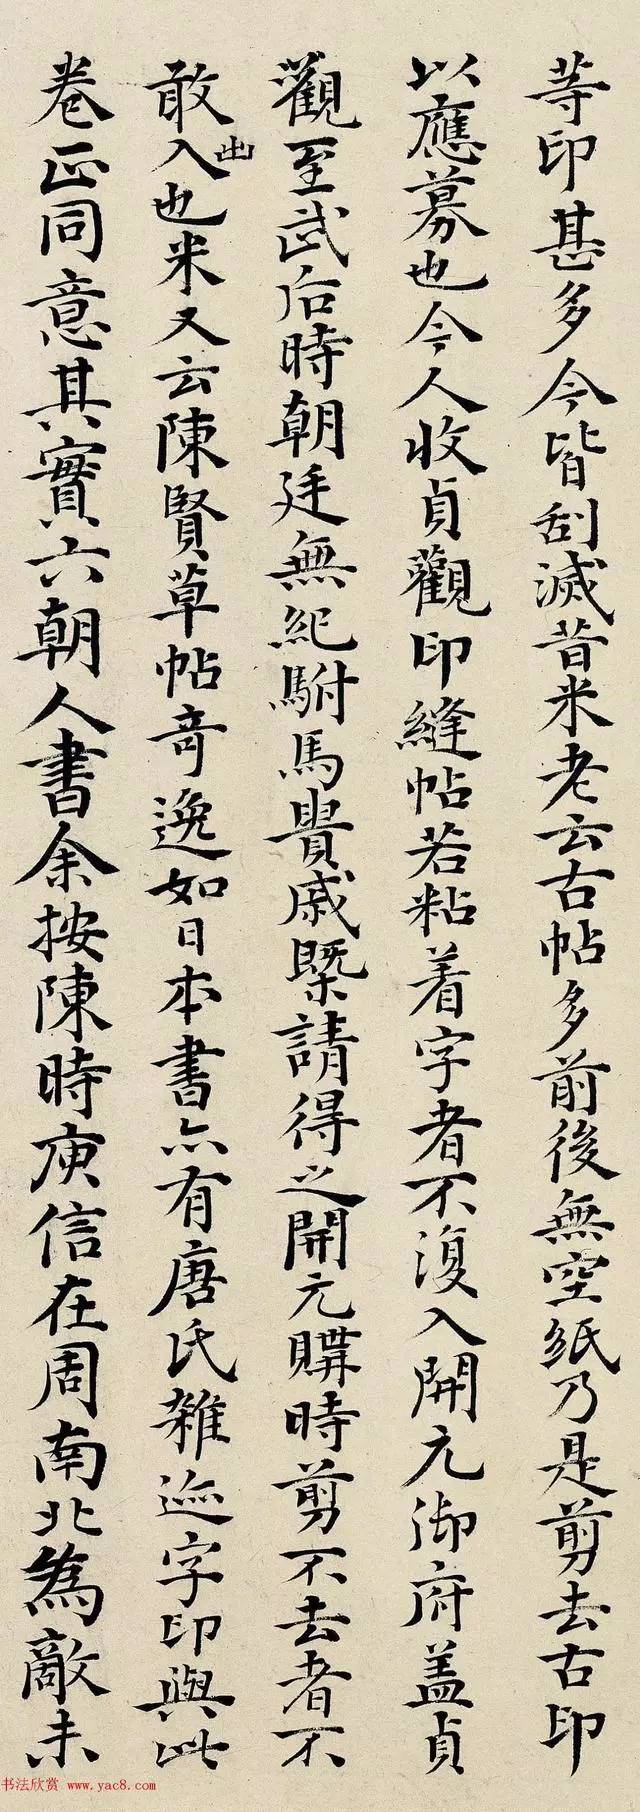 等印甚多今皆刮滅昔米老云古帖多前後無空紙乃是剪去古印
以應募也今人收貞觀印縫帖若粘着字者不復入開元御府盖貞
觀至武后時朝廷無紀駙馬貴戚暨請得之開元購時剪不去者不
敢出入也米又云陳賢草帖奇逸如日本書亦有唐氏雜迹字印與此
卷正同意其實六朝人書余按陳時庾信在周南北為敵未
书法欣赏 www.yac8.com